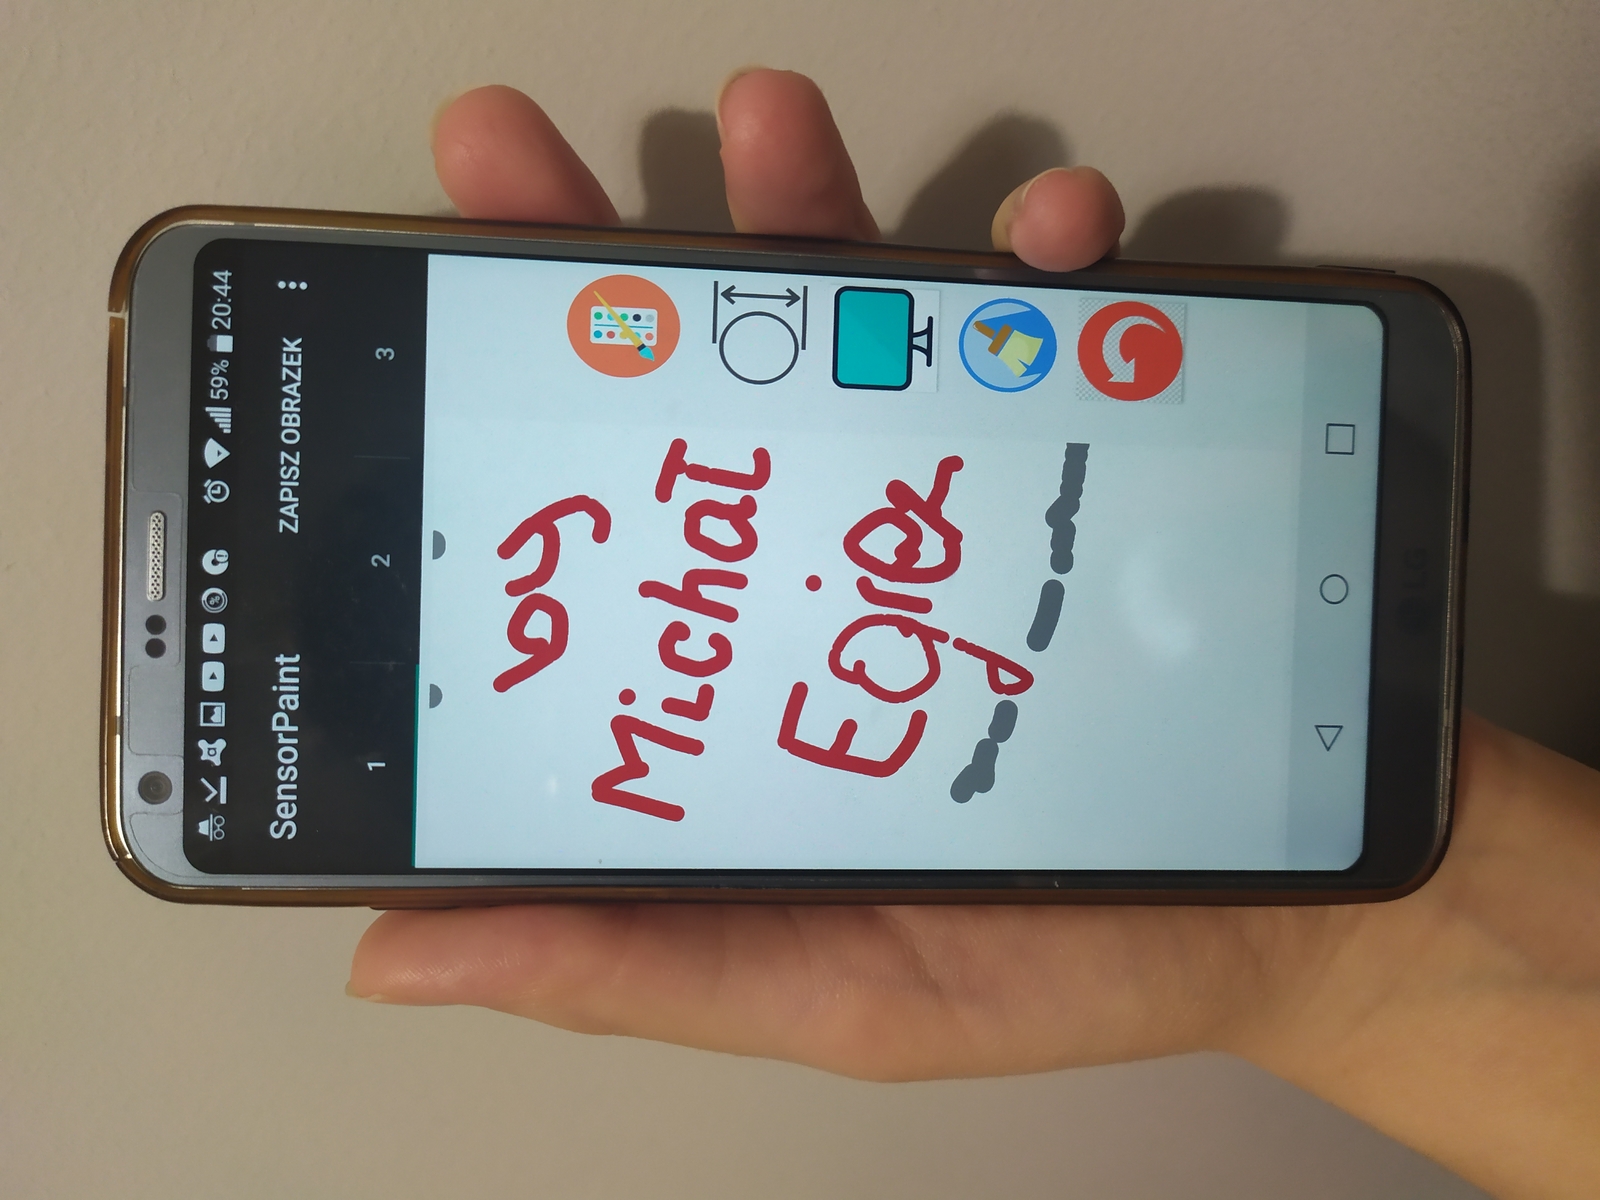 59% 20:44
SensorPaint ZAPISZ OBRAZEK
1 2 3
by
Michał
Egier
LG